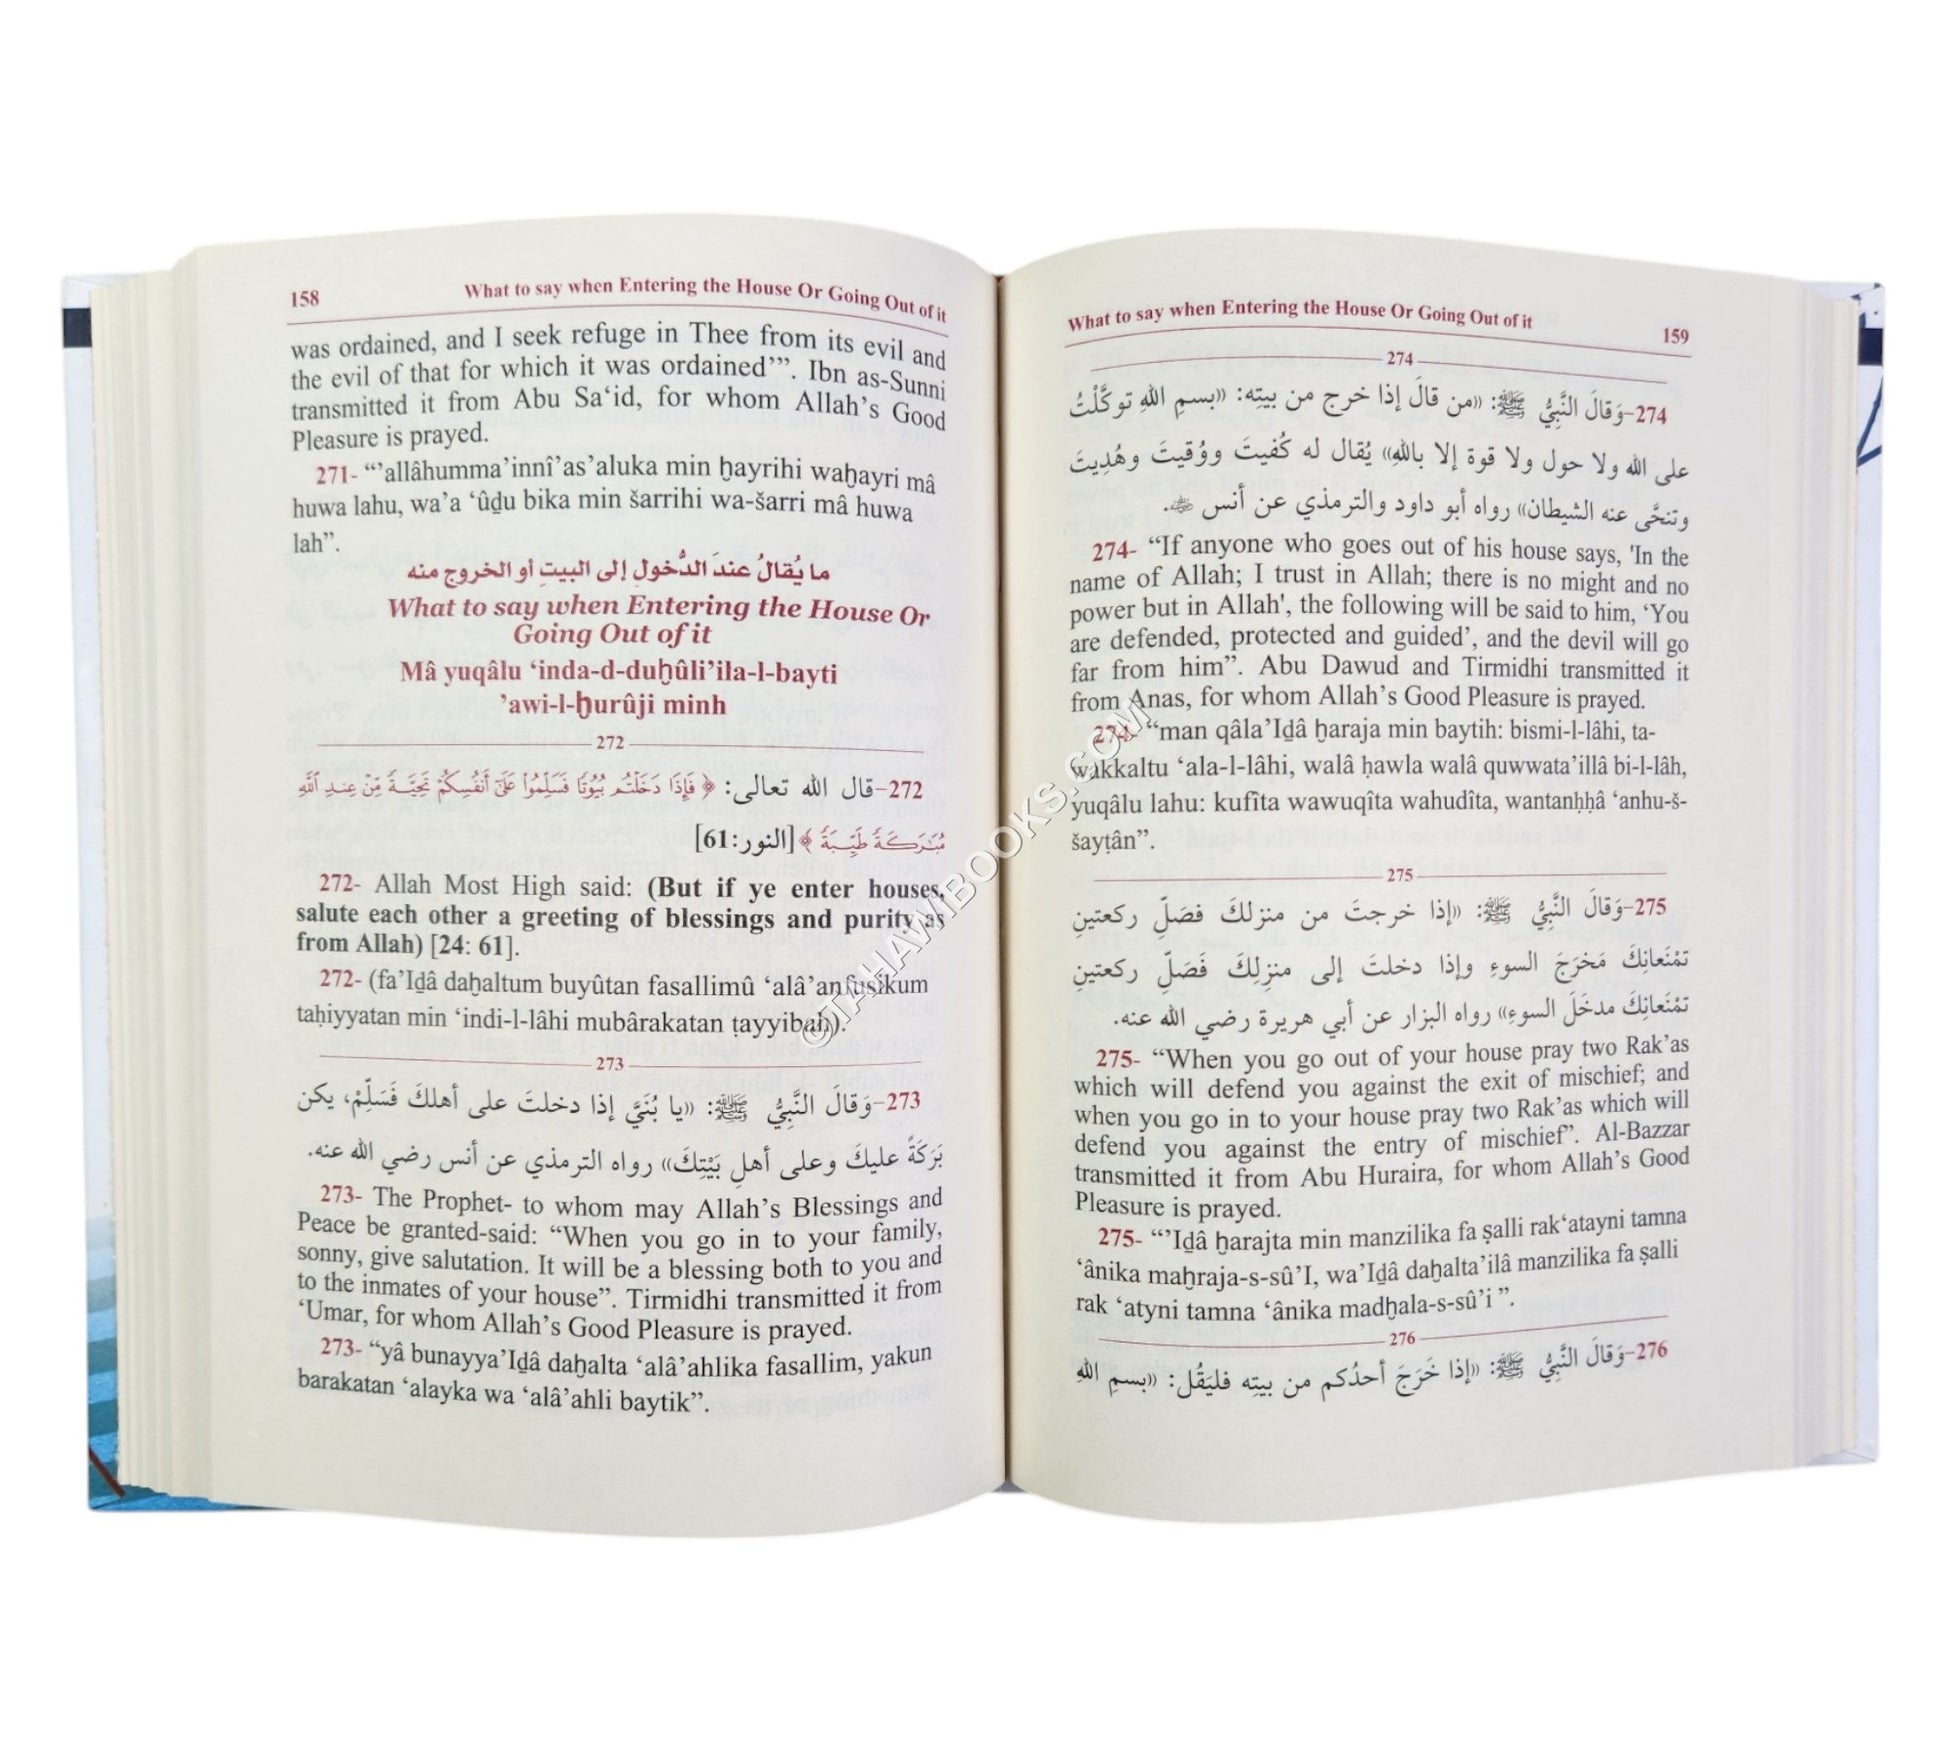 158
What to say when Entering the House Or Going Out of it
was ordained, and I seek refuge in Thee from its evil and
the evil of that for which it was ordained’”. Ibn as-Sunni
transmitted it from Abu Sa‘id, for whom Allah’s Good
Pleasure is prayed.
271- “’allâhumma’innî’as’aluka min ẖayrihi waẖayri mâ
huwa lahu, wa’a ‘ûḏu bika min šarrihi wa-šarri mâ huwa
lah”.
ما يُقالُ عندَ الدُّخولِ إلى البيتِ أو الخروج منه
What to say when Entering the House Or
Going Out of it
Mâ yuqâlu ‘inda-d-duẖûli’ila-l-bayti
’awi-l-ẖurûji minh
272
272-قال الله تعالى: ﴿ فَإِذَا دَخَلْتُم بُيُوتًا فَسَلِّمُوا عَلَىٰٓ أَنفُسِكُمْ تَحِيَّةً مِّنْ عِندِ ٱللَّهِ
مُبَٰرَكَةً طَيِّبَةً ﴾ [النور:61]
272- Allah Most High said: (But if ye enter houses,
salute each other a greeting of blessings and purity as
from Allah) [24: 61].
272- (fa’Iḏâ daẖaltum buyûtan fasallimû ‘alâ’anfusikum
taḥiyyatan min ‘indi-l-lâhi mubârakatan ṭayyibah).
273
273-وَقالَ النَّبِيُّ ﷺ: «يا بُنَيَّ إذا دخلتَ على أهلكَ فَسَلِّمْ، يكن
بَرَكَةً عليكَ وعلى أهلِ بَيْتِكَ» رواه الترمذي عن أنس رضي الله عنه.
273- The Prophet- to whom may Allah’s Blessings and
Peace be granted-said: “When you go in to your family,
sonny, give salutation. It will be a blessing both to you and
to the inmates of your house”. Tirmidhi transmitted it from
‘Umar, for whom Allah’s Good Pleasure is prayed.
273- “yâ bunayya’Iḏâ daẖalta ‘alâ’ahlika fasallim, yakun
barakatan ‘alayka wa ‘alâ’ahli baytik”.
What to say when Entering the House Or Going Out of it
159
274
274-وَقالَ النَّبِيُّ ﷺ: «من قالَ إذا خرج من بيتِه: «بسمِ اللهِ توكَّلْتُ
على الله ولا حول ولا قوة إلا باللهِ» يُقال له كُفيتَ ووُقيتَ وهُدِيتَ
وتنحَّى عنه الشيطان» رواه أبو داود والترمذي عن أنس ﷺ.
274- “If anyone who goes out of his house says, 'In the
name of Allah; I trust in Allah; there is no might and no
power but in Allah', the following will be said to him, ‘You
are defended, protected and guided’, and the devil will go
far from him”. Abu Dawud and Tirmidhi transmitted it
from Anas, for whom Allah’s Good Pleasure is prayed.
274- “man qâla’Iḏâ ẖaraja min baytih: bismi-l-lâhi, ta-
wakkaltu ‘ala-l-lâhi, walâ ḥawla walâ quwwata’illâ bi-l-lâh,
yuqâlu lahu: kufîta wawuqîta wahudîta, wantanḥḥâ ‘anhu-š-
šayṭân”.
275
275-وَقالَ النَّبِيُّ ﷺ: «إذا خرجتَ من منزلكَ فصَلِّ ركعتينِ
تمْنَعانِكَ مَخرَجَ السوءِ وإذا دخلتَ إلى منزِلِكَ فَصَلِّ ركعتينِ
تمْنَعانِكَ مدخَلَ السوءِ» رواه البزار عن أبي هريرة رضي الله عنه.
275- “When you go out of your house pray two Rak’as
which will defend you against the exit of mischief; and
when you go in to your house pray two Rak’as which will
defend you against the entry of mischief”. Al-Bazzar
transmitted it from Abu Huraira, for whom Allah’s Good
Pleasure is prayed.
275- “’Iḏâ ẖarajta min manzilika fa ṣalli rak‘atayni tamna
‘ânika maẖraja-s-sû’I, wa’Iḏâ daẖalta’ilâ manzilika fa ṣalli
rak ‘atyni tamna ‘ânika madẖala-s-sû’i ”.
276
276-وَقالَ النَّبِيُّ ﷺ: «إذا خَرَجَ أحدُكم من بيتِه فليَقُل: «بسمِ اللهِ
©TAHAWIBOOKS.COM